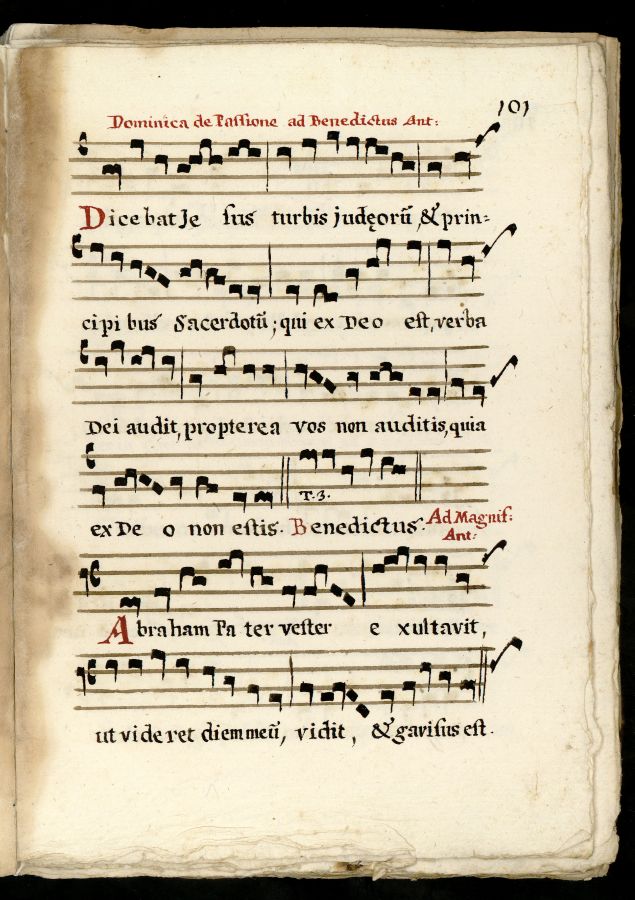 101
Dominica de Passione ad Benedictus Ant:
Dicebat Je sus turbis judęorũ, & prin=
cipi bus Sacerdotũ; qui ex Deo est, verba
Dei audit, propterea vos non auditis, quia
T. 3.
ex De o non estis. Benedictus. Ad Magnif: Ant:
Abraham Pa ter vester e xultavit,
ut videret diem meũ, vidit, & gavisus est.